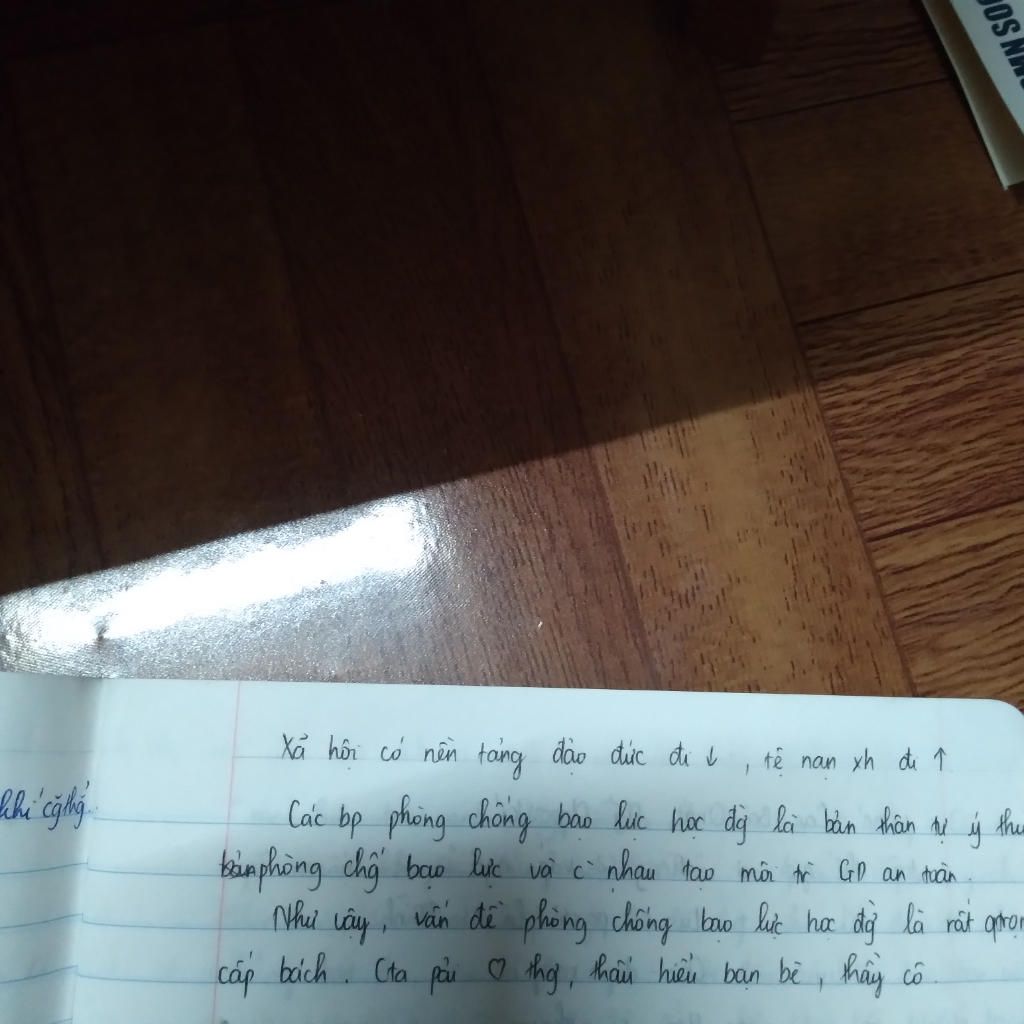 Xã hội có nền tảng đạo đức đi ↓, tệ nạn xh đi ↑
khí cg̃ thg̉.
Các bp phòng chống bạo lực học đg̀ là bản thân tự ý thu
phòng chg̃́ bạo lực và c̀ nhau tạo môi tr̀ GD an toàn.
Như vậy, vấn đề phòng chống bạo lực học đg̀ là rất qtrọn
cấp bách. Cta pải ♡ thg, thấu hiểu bạn bè, thầy cô.